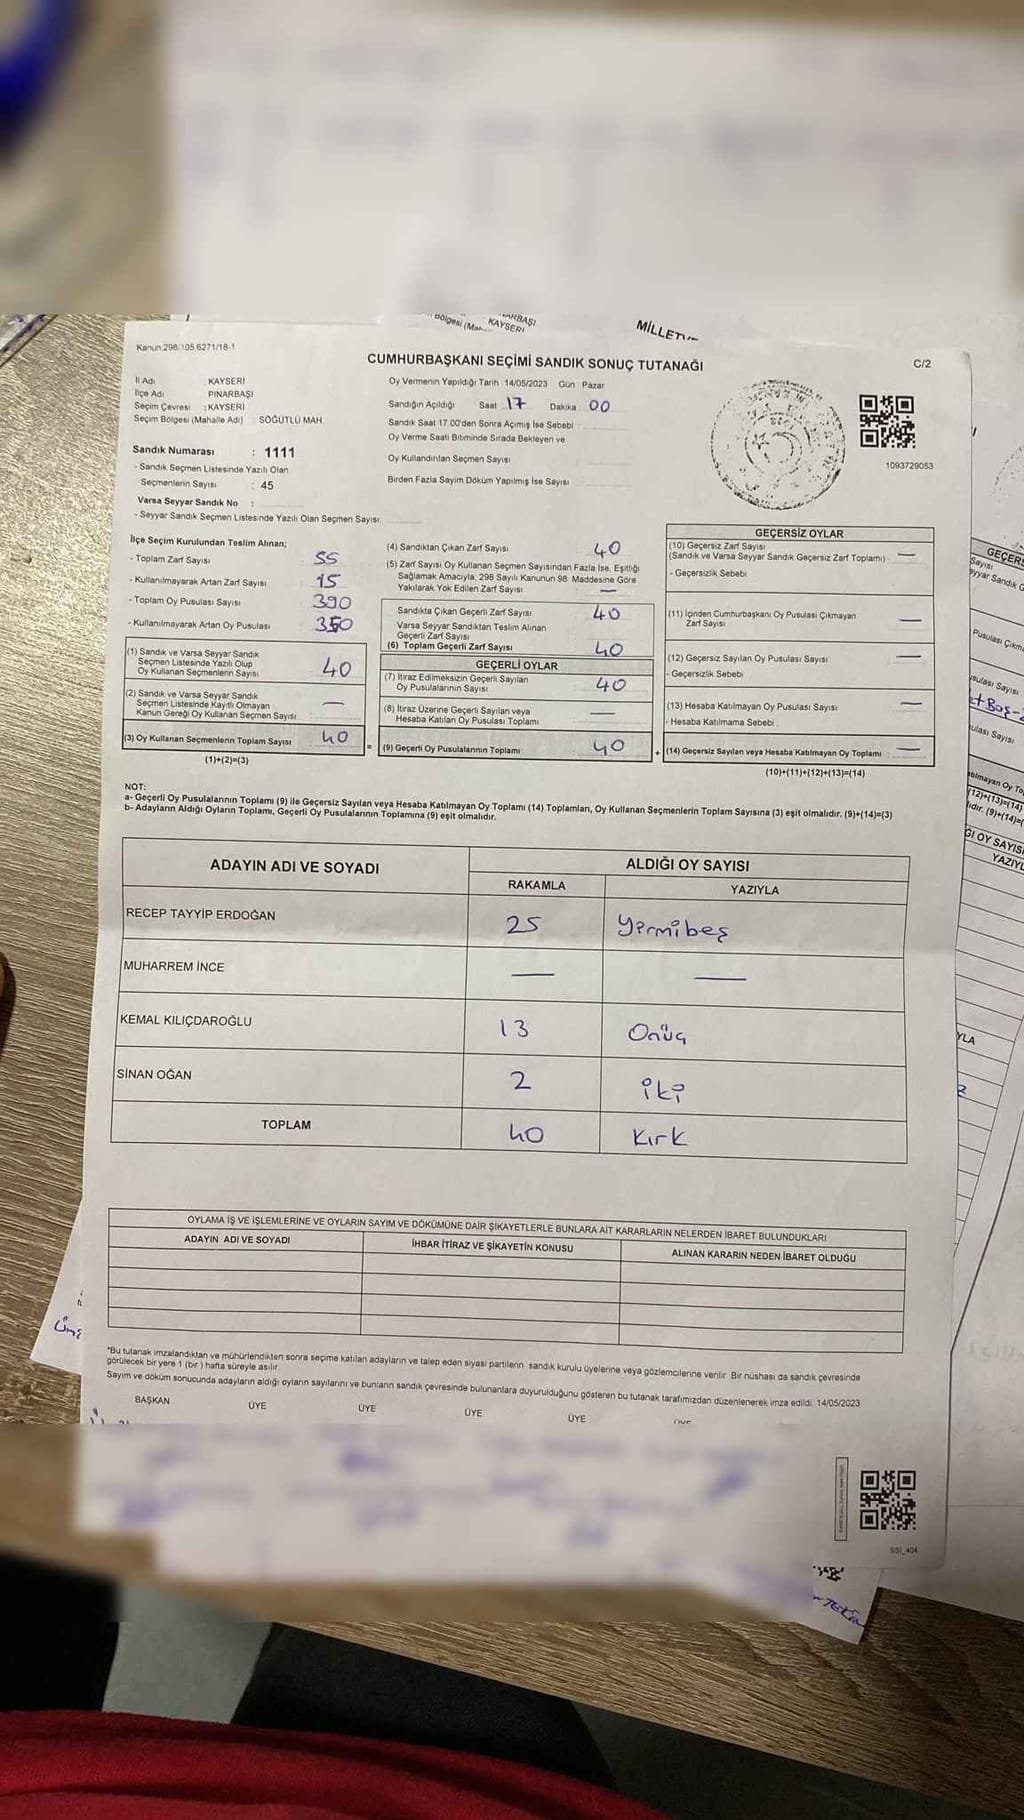 KAYSERİ
Kanun.298/105,6271/18-1
CUMHURBAŞKANI SEÇİMİ SANDIK SONUÇ TUTANAĞI
C/2
İl Adı KAYSERİ
İlçe Adı PINARBAŞI
Seçim Çevresi : KAYSERİ
Seçim Bölgesi (Mahalle Adı) SÖĞÜTLÜ MAH.
Sandık Numarası : 1111
- Sandık Seçmen Listesinde Yazılı Olan
Seçmenlerin Sayısı : 45
Varsa Seyyar Sandık No :
- Seyyar Sandık Seçmen Listesinde Yazılı Olan Seçmen Sayısı:
Oy Vermenin Yapıldığı Tarih 14/05/2023 Gün : Pazar
Sandığın Açıldığı Saat 17 Dakika 00
Sandık Saat 17.00'den Sonra Açımış İse Sebebi
Oy Verme Saati Bitiminde Sırada Bekleyen ve
Oy Kullandırılan Seçmen Sayısı
Birden Fazla Sayım Döküm Yapılmış İse Sayısı
1093729053
İlçe Seçim Kurulundan Teslim Alınan;
- Toplam Zarf Sayısı 55
- Kullanılmayarak Artan Zarf Sayısı 15
- Toplam Oy Pusulası Sayısı 390
- Kullanılmayarak Artan Oy Pusulası 350
(1) Sandık ve Varsa Seyyar Sandık
Seçmen Listesinde Yazılı Olup
Oy Kullanan Seçmenlerin Sayısı 40
(2) Sandık ve Varsa Seyyar Sandık
Seçmen Listesinde Kayıtlı Olmayan
Kanun Gereği Oy Kullanan Seçmen Sayısı —
(3) Oy Kullanan Seçmenlerin Toplam Sayısı 40
(1)+(2)=(3)
(4) Sandıktan Çıkan Zarf Sayısı 40
(5) Zarf Sayısı Oy Kullanan Seçmen Sayısından Fazla İse, Eşitliği
Sağlamak Amacıyla, 298 Sayılı Kanunun 98. Maddesine Göre
Yakılarak Yok Edilen Zarf Sayısı —
Sandıkta Çıkan Geçerli Zarf Sayısı 40
Varsa Seyyar Sandıktan Teslim Alınan
Geçerli Zarf Sayısı
(6) Toplam Geçerli Zarf Sayısı 40
GEÇERLİ OYLAR
(7) İtiraz Edilmeksizin Geçerli Sayılan
Oy Pusulalarının Sayısı 40
(8) İtiraz Üzerine Geçerli Sayılan veya
Hesaba Katılan Oy Pusulası Toplamı —
= (9) Geçerli Oy Pusulalarının Toplamı 40
GEÇERSİZ OYLAR
(10) Geçersiz Zarf Sayısı
(Sandık ve Varsa Seyyar Sandık Geçersiz Zarf Toplamı) —
- Geçersizlik Sebebi
(11) İçinden Cumhurbaşkanı Oy Pusulası Çıkmayan
Zarf Sayısı —
(12) Geçersiz Sayılan Oy Pusulası Sayısı —
- Geçersizlik Sebebi
(13) Hesaba Katılmayan Oy Pusulası Sayısı —
- Hesaba Katılmama Sebebi
+ (14) Geçersiz Sayılan veya Hesaba Katılmayan Oy Toplamı —
(10)+(11)+(12)+(13)=(14)
NOT:
a- Geçerli Oy Pusulalarının Toplamı (9) ile Geçersiz Sayılan veya Hesaba Katılmayan Oy Toplamı (14) Toplamları, Oy Kullanan Seçmenlerin Toplam Sayısına (3) eşit olmalıdır. (9)+(14)=(3)
b- Adayların Aldığı Oyların Toplamı, Geçerli Oy Pusulalarının Toplamına (9) eşit olmalıdır.
ADAYIN ADI VE SOYADI ALDIĞI OY SAYISI
RAKAMLA YAZIYLA
RECEP TAYYİP ERDOĞAN 25 Yirmibeş
MUHARREM İNCE — —
KEMAL KILIÇDAROĞLU 13 Onüç
SİNAN OĞAN 2 iki
TOPLAM 40 Kırk
OYLAMA İŞ VE İŞLEMLERİNE VE OYLARIN SAYIM VE DÖKÜMÜNE DAİR ŞİKAYETLERLE BUNLARA AİT KARARLARIN NELERDEN İBARET BULUNDUKLARI
ADAYIN ADI VE SOYADI İHBAR İTİRAZ VE ŞİKAYETİN KONUSU ALINAN KARARIN NEDEN İBARET OLDUĞU
*Bu tutanak imzalandıktan ve mühürlendikten sonra seçime katılan adayların ve talep eden siyasi partilerin sandık kurulu üyelerine veya gözlemcilerine verilir. Bir nüshası da sandık çevresinde
görülecek bir yere 1 (bir ) hafta süreyle asılır.
Sayım ve döküm sonucunda adayların aldığı oyların sayılarını ve bunların sandık çevresinde bulunanlara duyurulduğunu gösteren bu tutanak tarafımızdan düzenlenerek imza edildi. 14/05/2023
BAŞKAN ÜYE ÜYE ÜYE ÜYE
SSI_404